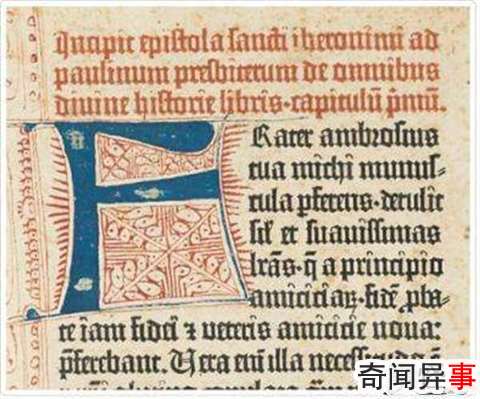 Incipit epistola sancti iheronimi ad
paulinum presbiterum de omnibus
divine historie libris·capitulū pͥmū.
FRater ambrosius
tua michi munus-
cula pferens·detulit
siɫ et suavissimas
lrās·q̄ a principio
amiciciaꝝ·fidē pba-
te iam fidei ⁊ veteris amicicie nova:
pferebant. Vera eni illa necessitudo
奇闻异事